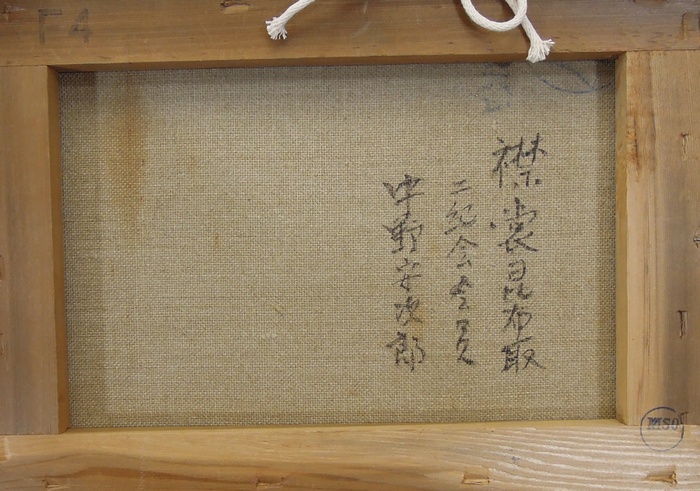 F4
襟裳昆布取
二紀会委員
中野安次郎